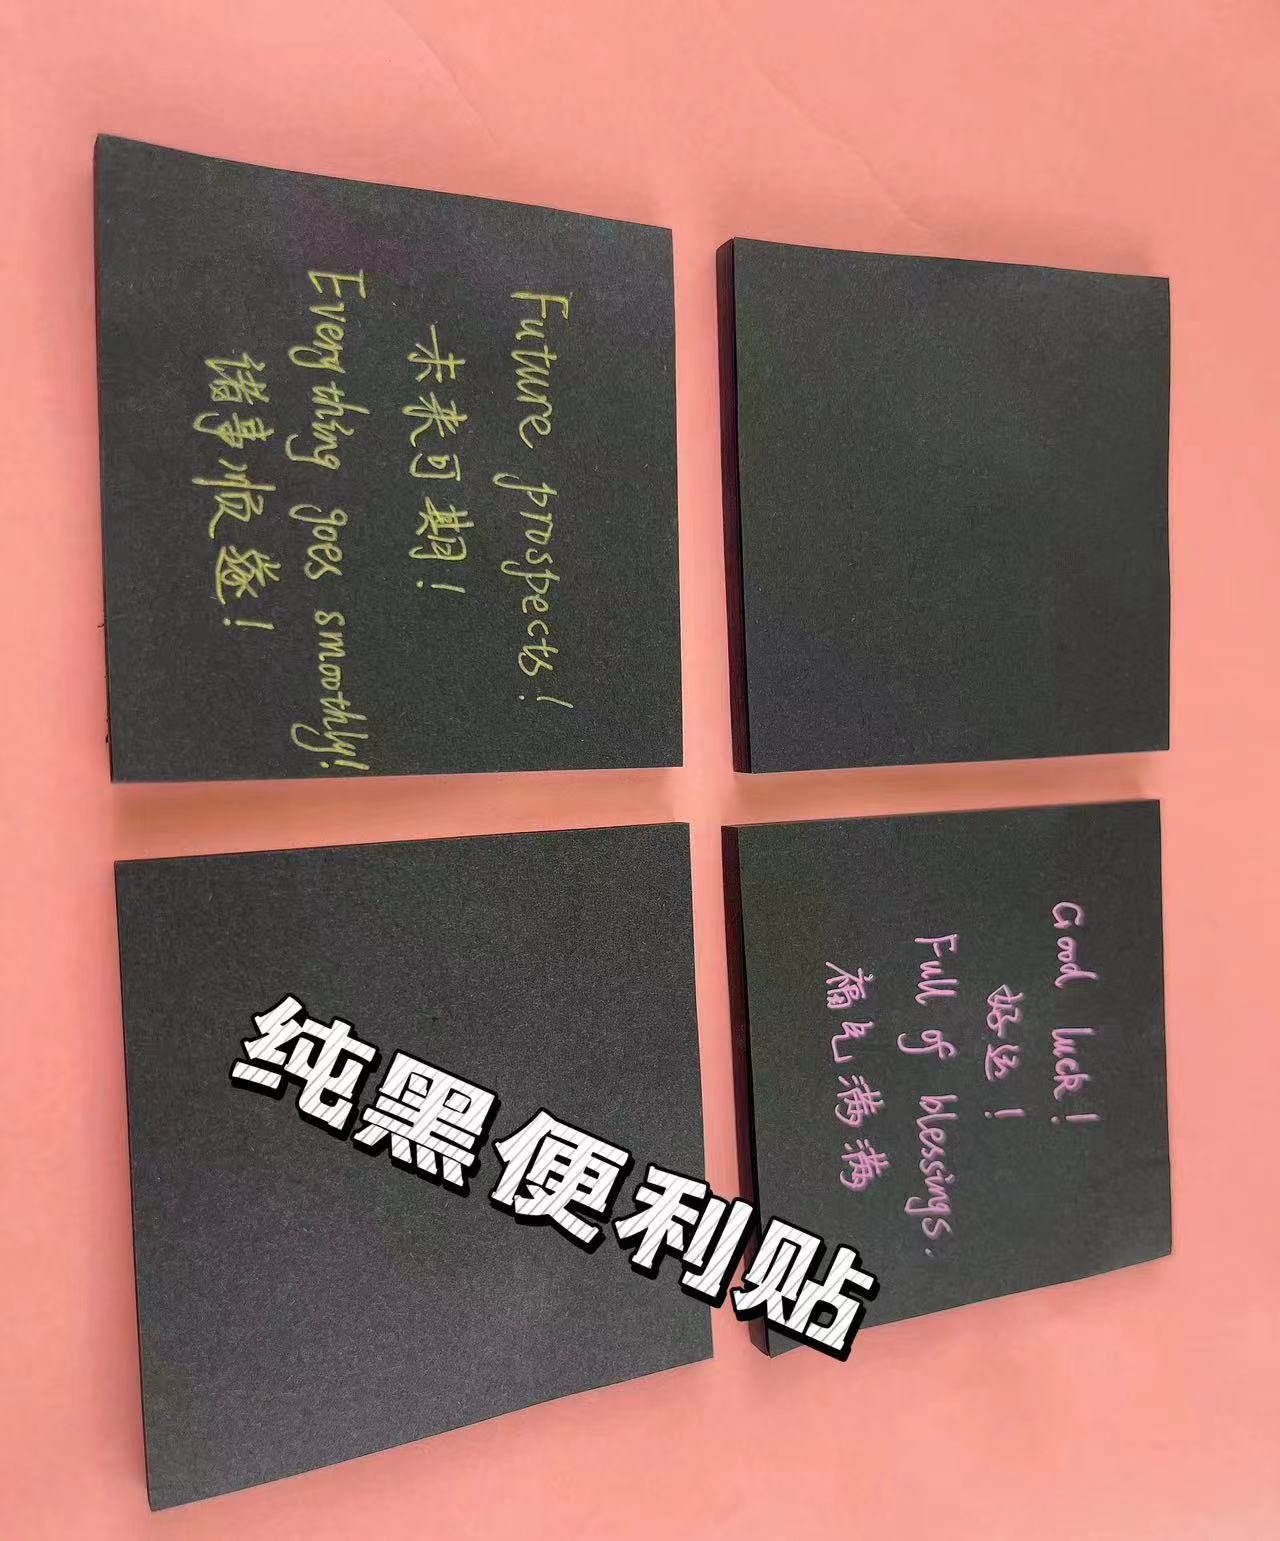 Future prospects!
未来可期!
Everything goes smoothly!
诸事顺遂!
Good luck!
好运!
Full of blessings.
福气满满
纯黑便利贴